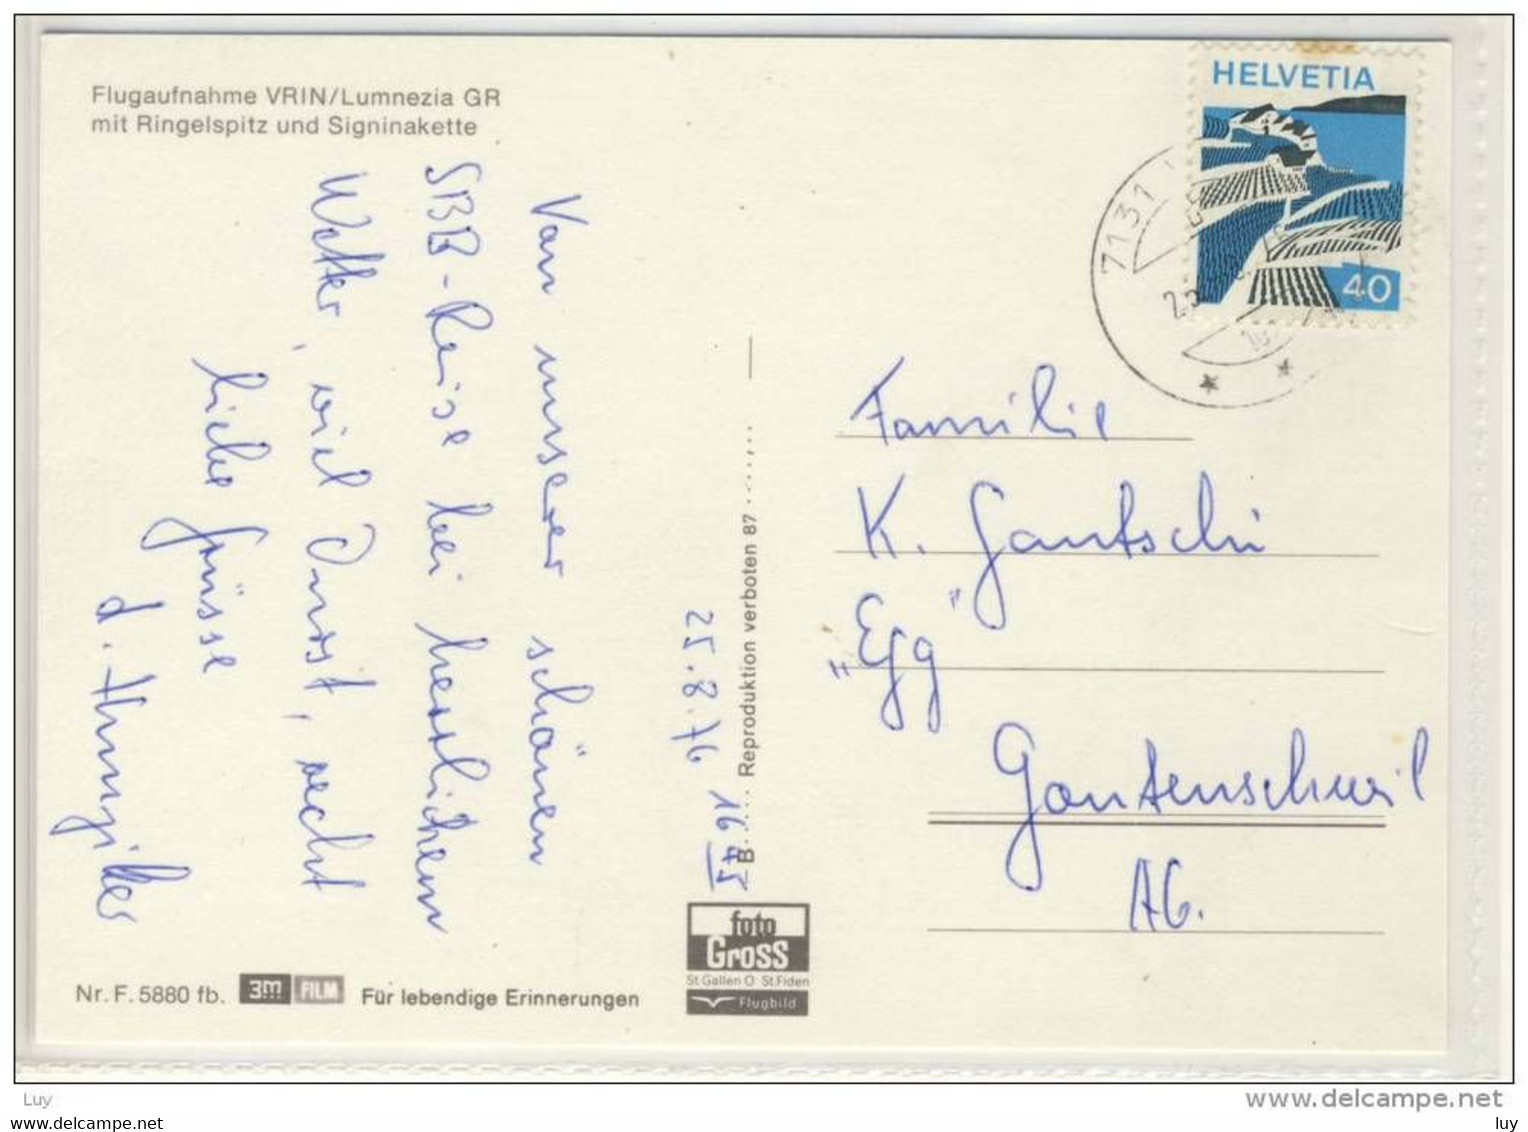 Flugaufnahme VRIN/Lumnezia GR
mit Ringelspitz und Signinakette
Von unserer schönen
SBB-Reise bei herrlichem
Wetter, viel Durst, recht
liebe Grüsse
d. Hunziker
25.8.76 16 45
B Reproduktion verboten 87
HELVETIA
40
7131
Familie
K. Gautschi
„Egg"
Gontenschwil
AG.
foto
Gross
St.Gallen O St.Fiden
Flugbild
Nr. F. 5880 fb. 3m FILM Für lebendige Erinnerungen
Luy
www.delcampe.net
www.delcampe.net
luy